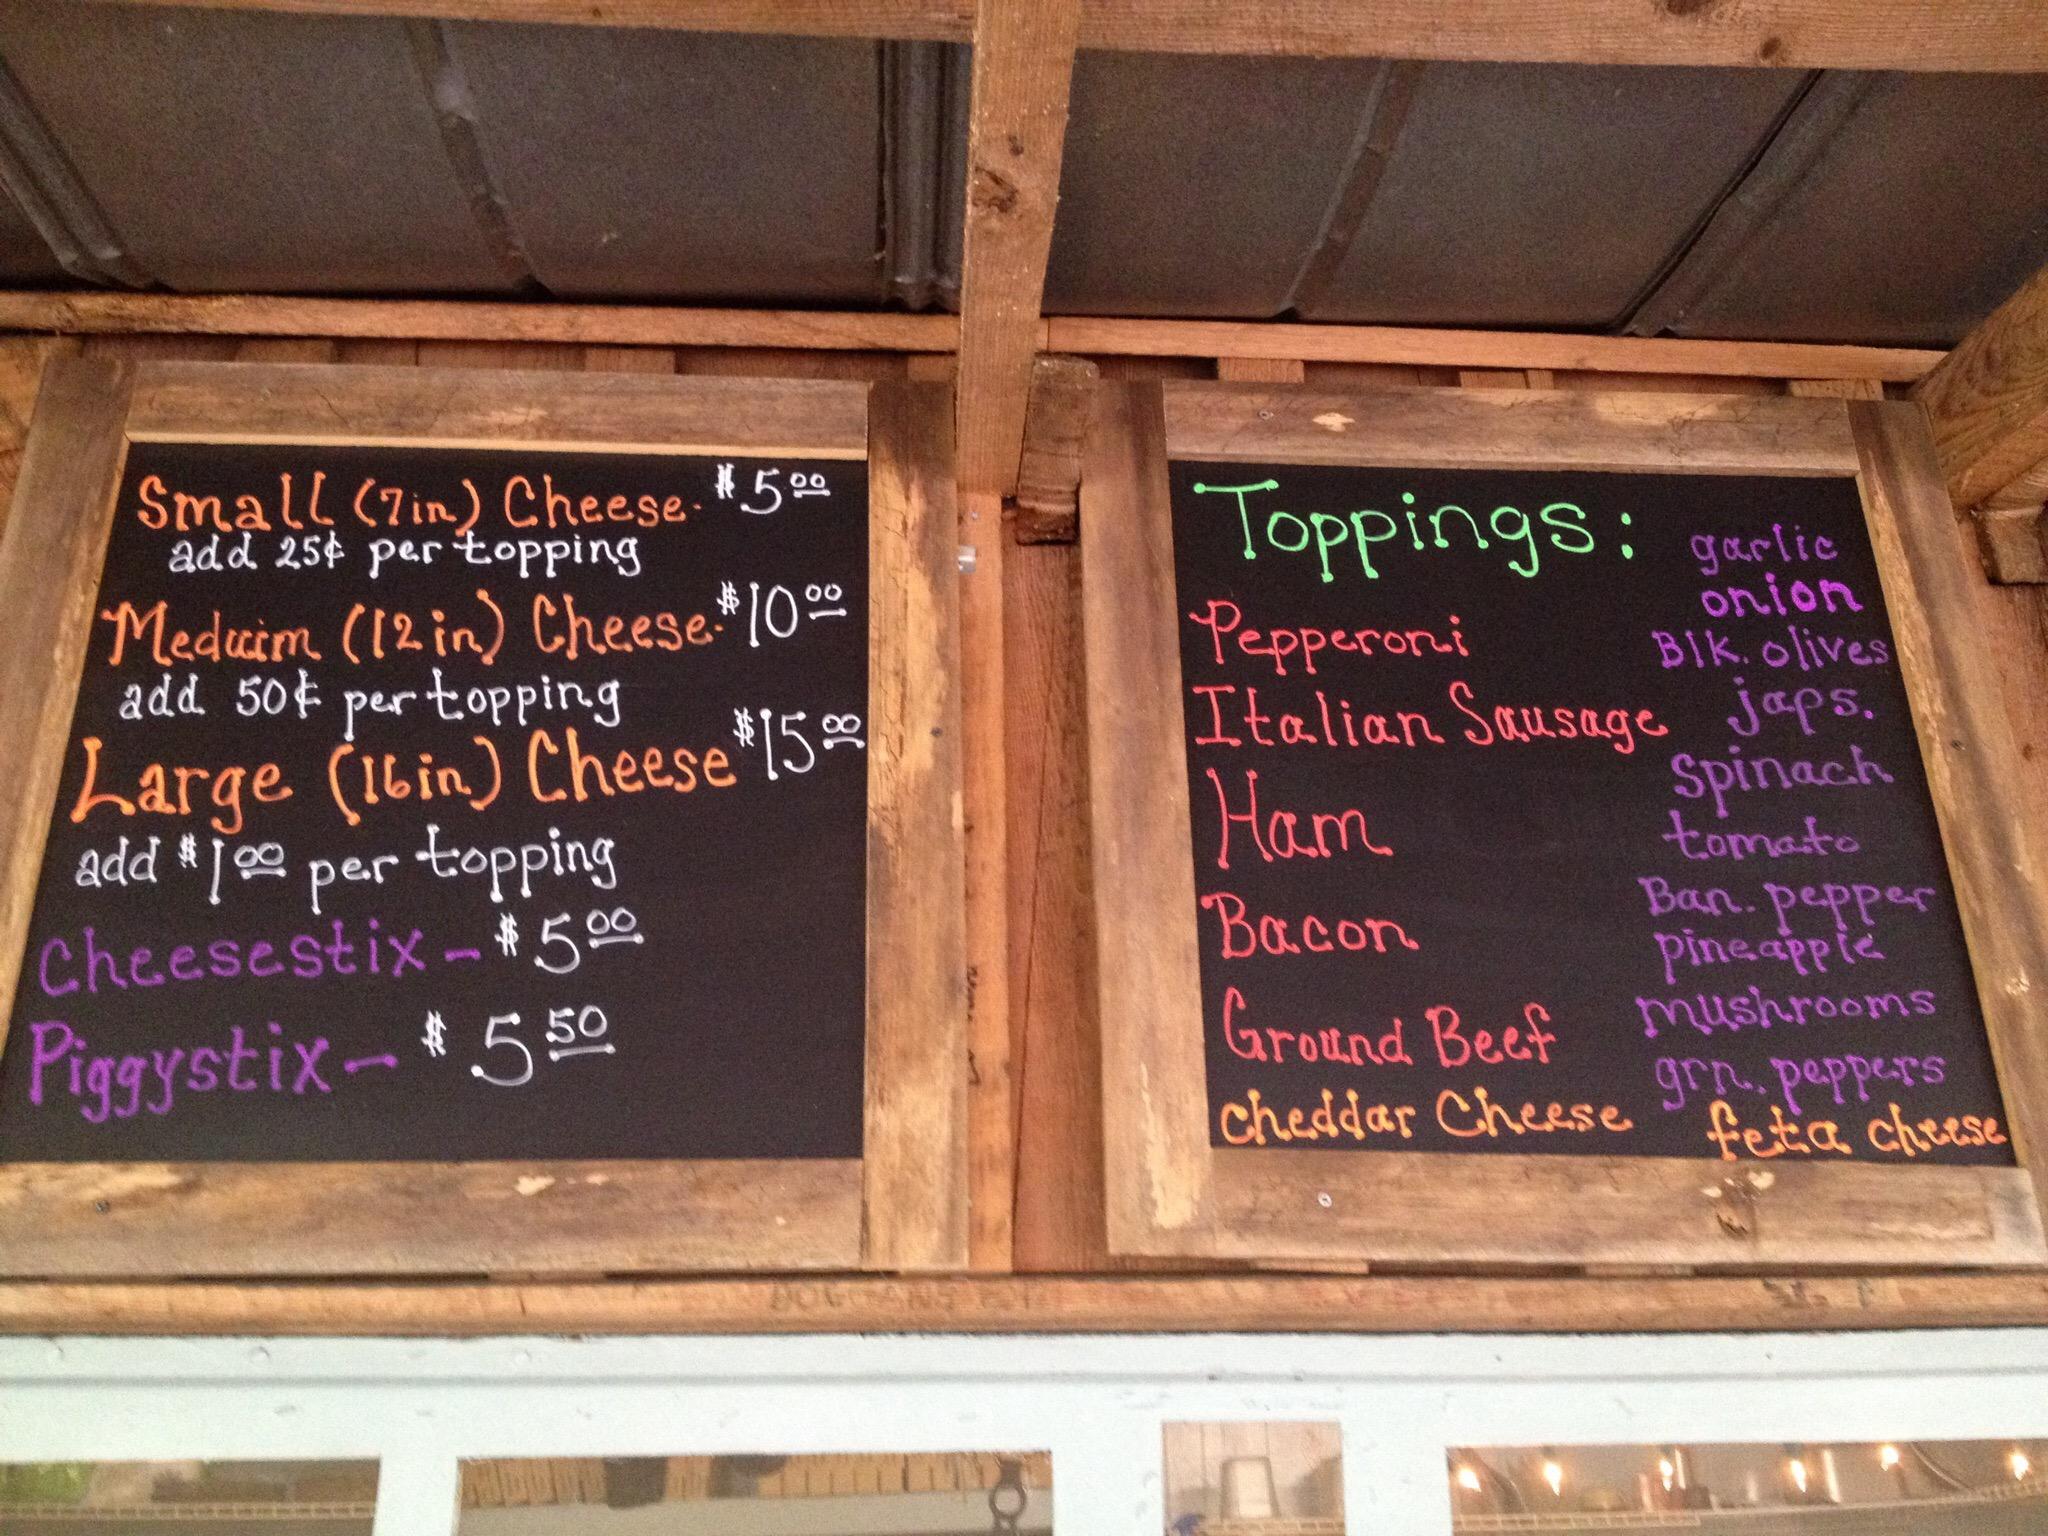 Small (7in) Cheese- $5.00
add 25¢ per topping
Meduim (12in) Cheese- $10.00
add 50¢ per topping
Large (16in) Cheese $15.00
add $1.00 per topping
Cheesestix - $5.00
Piggystix - $5.50
Toppings:
Pepperoni
Italian Sausage
Ham
Bacon
Ground Beef
Cheddar Cheese
garlic
onion
Blk. olives
japs.
Spinach
tomato
Ban. pepper
pineapple
mushrooms
grn. peppers
feta cheese